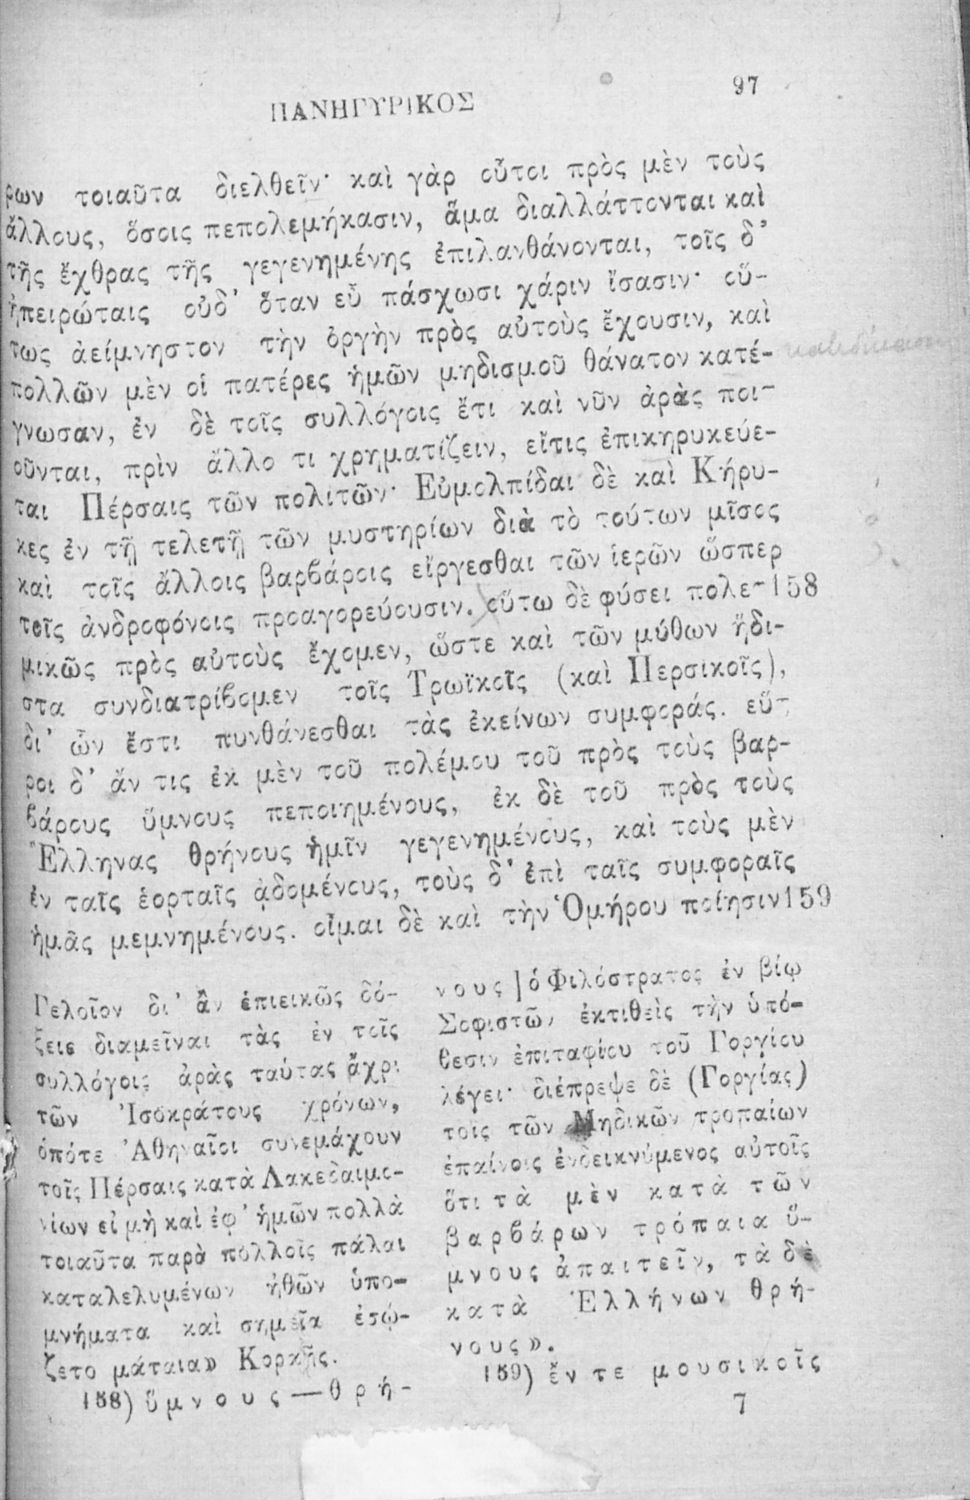 ΠΑΝΗΓΥΡΙΚΟΣ 97
ρων τοιαῦτα διελθεῖν· καὶ γὰρ οὗτοι πρὸς μὲν τοὺς
ἄλλους, ὅσοις πεπολεμήκασιν, ἅμα διαλλάττονται καὶ
τῆς ἔχθρας τῆς γεγενημένης ἐπιλανθάνονται, τοῖς δ'
ἠπειρώταις οὐδ' ὅταν εὖ πάσχωσι χάριν ἴσασιν· οὕ-
τως ἀείμνηστον τὴν ὀργὴν πρὸς αὐτοὺς ἔχουσιν, καὶ
πολλῶν μὲν οἱ πατέρες ἡμῶν μηδισμοῦ θάνατον κατέ-
γνωσαν, ἐν δὲ τοῖς συλλόγοις ἔτι καὶ νῦν ἀρὰς ποι-
οῦνται, πρὶν ἄλλο τι χρηματίζειν, εἴτις ἐπικηρυκεύε-
ται Πέρσαις τῶν πολιτῶν· Εὐμολπίδαι δὲ καὶ Κήρυ-
κες ἐν τῇ τελετῇ τῶν μυστηρίων διὰ τὸ τούτων μῖσος
καὶ τοῖς ἄλλοις βαρβάροις εἴργεσθαι τῶν ἱερῶν ὥσπερ
τοῖς ἀνδροφόνοις προαγορεύουσιν. οὕτω δὲ φύσει πολε- 158
μικῶς πρὸς αὐτοὺς ἔχομεν, ὥστε καὶ τῶν μύθων ἥδι-
στα συνδιατρίβομεν τοῖς Τρωϊκοῖς (καὶ Περσικοῖς),
δι' ὧν ἔστι πυνθάνεσθαι τὰς ἐκείνων συμφοράς. εὕ-
ροι δ' ἄν τις ἐκ μὲν τοῦ πολέμου τοῦ πρὸς τοὺς βαρ-
βάρους ὕμνους πεποιημένους, ἐκ δὲ τοῦ πρὸς τοὺς
Ἕλληνας θρήνους ἡμῖν γεγενημένους, καὶ τοὺς μὲν
ἐν ταῖς ἑορταῖς ᾀδομένους, τοὺς δ' ἐπὶ ταῖς συμφοραῖς
ἡμᾶς μεμνημένους. οἶμαι δὲ καὶ τὴν Ὁμήρου ποίησιν 159
Γελοῖον δι' ἂν ἐπιεικῶς δό-
ξειε διαμεῖναι τὰς ἐν τοῖς
συλλόγοις ἀρὰς ταύτας ἄχρι
τῶν Ἰσοκράτους χρόνων,
ὁπότε Ἀθηναῖοι συνεμάχουν
τοῖς Πέρσαις κατὰ Λακεδαιμο-
νίων εἰ μὴ καὶ ἐφ' ἡμῶν πολλὰ
τοιαῦτα παρὰ πολλοῖς πάλαι
καταλελυμένων ἠθῶν ὑπο-
μνήματα καὶ σημεῖα ἐσώ-
ζετο μάταια» Κοραῆς.
158) ὕμνους—θρή-
νους] ὁ Φιλόστρατος ἐν βίῳ
Σοφιστῶν ἐκτιθεὶς τὴν ὑπό-
θεσιν ἐπιταφίου τοῦ Γοργίου
λέγει· διέπρεψε δὲ (Γοργίας)
τοῖς τῶν Μηδικῶν τροπαίων
ἐπαίνοις ἐνδεικνύμενος αὐτοῖς
ὅτι τὰ μὲν κατὰ τῶν
βαρβάρων τρόπαια ὕ-
μνους ἀπαιτεῖν, τὰ δὲ
κατὰ Ἑλλήνων θρή-
νους».
159) ἔν τε μουσικοῖς
7